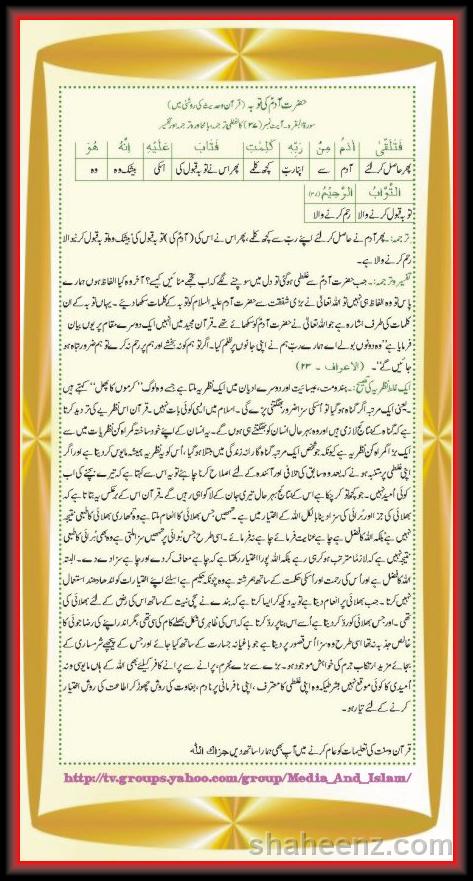 حضرت آدمؑ کی توبہ (قرآن وحدیث کی روشنی میں)
سورۃ البقرہ۔ آیت نمبر (۳۷) کا لفظی ترجمہ، بامحاورہ ترجمہ اور تفسیر
فَتَلَقّٰٓى اٰدَمُ مِنْ رَبِّهٖ كَلِمٰتٍ فَتَابَ عَلَيْهِ اِنَّهٗ هُوَ
پھر حاصل کر لئے آدم سے اپنا ربّ کچھ کلمے پھر اس نے توبہ قبول کی اسکی بیشک وہ وہ
التَّوَّابُ الرَّحِيْمُ (۳۷)
توبہ قبول کرنے والا رحم کرنے والا
ترجمہ:۔ پھر آدم نے حاصل کر لئے اپنے ربّ سے کچھ کلمے، پھر اس نے اس کی (آدم کی) توبہ قبول کی بیشک وہ توبہ قبول کرنے والا
رحم کرنے والا ہے۔
تفسیر و ترجمہ:۔ جب حضرت آدمؑ سے غلطی ہو گئی تو دل میں سوچنے لگے کہ اب تجھے منائیں کیسے؟ آخر وہ کیا الفاظ ہوں ہمارے
پاس تو وہ الفاظ ہی نہیں تو اللہ تعالیٰ نے بڑی شفقت سے حضرت آدم علیہ السلام کو توبہ کے کلمات سکھا دیئے۔ یہاں توبہ کے ان
کلمات کی طرف اشارہ ہے جو اللہ تعالیٰ نے حضرت آدمؑ کو سکھائے تھے۔ قرآن مجید میں انہیں ایک دوسرے مقام پر یوں بیان
فرمایا ہے "وہ دونوں بولے اے ہمارے ربّ ہم نے اپنی جانوں پر ظلم کیا۔ اگر تو ہم کو نہ بخشے اور ہم پر رحم نہ کرے تو ہم ضرور تباہ ہو
جائیں گے"۔ (الاعراف ۔ ۲۳)
ایک غلط نظریہ کی تصحیح:۔ ہندو مت، عیسائیت اور دوسرے ادیان میں ایک نظریہ ملتا ہے جسے وہ لوگ "کرموں کا پھل" کہتے ہیں
۔ یعنی ایک مرتبہ اگر گناہ ہو گیا تو اُسکی سزا ضرور بھگتنی پڑے گی۔ اسلام میں ایسی کوئی بات نہیں۔ قرآن اس نظریے کی تردید کرتا
ہے کہ گناہ کے نتائج لازمی ہیں اور وہ بہر حال انسان کو بھگتنے ہی ہوں گے۔ یہ انسان کے اپنے خود ساختہ گمراہ کن نظریات میں سے
ایک بڑا گمراہ کن نظریہ ہے کیونکہ جو شخص ایک مرتبہ گناہ گارانہ زندگی میں مبتلا ہو گیا، اُس کو یہ نظریہ ہمیشہ مایوس کر دیتا ہے اور اگر
اپنی غلطی پر متنبہ ہونے کے بعد وہ سابق کی تلافی اور آئندہ کے لئے اصلاح کرنا چاہے تو یہ اس سے کہتا ہے کہ تیرے بچنے کی اب
کوئی امید نہیں۔ جو کچھ تو کر چکا ہے اس کے نتائج بہر حال تیری جان کے لاگو ہی رہیں گے۔ قرآن اس کے برعکس یہ بتاتا ہے کہ
بھلائی کی جزا اور بُرائی کی سزا دینا بالکل اللہ کے اختیار میں ہے۔ تمہیں جس بھلائی کا انعام ملتا ہے وہ تمہاری بھلائی کا طبعی نتیجہ
نہیں ہے بلکہ اللہ کا فضل ہے چاہے عنایت فرمائے چاہے نہ فرمائے۔ اسی طرح جس بُرائی پر تمہیں سزا ملتی ہے وہ بھی بُرائی کا طبعی
نتیجہ نہیں ہے کہ لازماً مترتب ہو کر ہی رہے بلکہ اللہ پورا اختیار رکھتا ہے کہ چاہے معاف کر دے اور چاہے سزا دے دے۔ البتہ
اللہ کا فضل ہے اور اُس کی رحمت اور اُسکی حکمت کے ساتھ ہم رشتہ ہے وہ چونکہ حکیم ہے اسلئے اپنے اختیارات کو اندھا دھند استعمال
نہیں کرتا۔ جب بھلائی پر انعام دیتا ہے تو یہ دیکھ کر ایسا کرتا ہے کہ بندے نے سچی نیت کے ساتھ اس کی رضا کے لئے بھلائی کی
تھی۔ اور جس بھلائی کو ردّ کر دیتا ہے اُسے اس بنا پر ردّ کرتا ہے کہ اس کی ظاہری شکل بھلے کام کی سی تھی، مگر اندر اپنے کی رضا جوئی کا
خالص جذبہ نہ تھا اسی طرح وہ سزا اُس قصور پر دیتا ہے جو باغیانہ جسارت کے ساتھ کیا جائے اور جس کے پیچھے شرمساری کے
بجائے مزید ارتکاب جرم کی خواہش موجود ہو۔ بڑے سے بڑے مجرم، پرانے سے پرانے کافر کیلئے بھی اللہ کے ہاں مایوسی و نہ
امیدی کا کوئی موقع نہیں بشرطیکہ وہ اپنی غلطی کا معترف، اپنی نافرمانی پر نادم، بغاوت کی روش چھوڑ کر اطاعت کی روش اختیار
کرنے کے لئے تیار ہو۔
قرآن وسنت کی تعلیمات کو عام کرنے میں آپ بھی ہمارا ساتھ دیں جزاك الله
http://tv.groups.yahoo.com/group/Media_And_Islam/
shaheenz.com